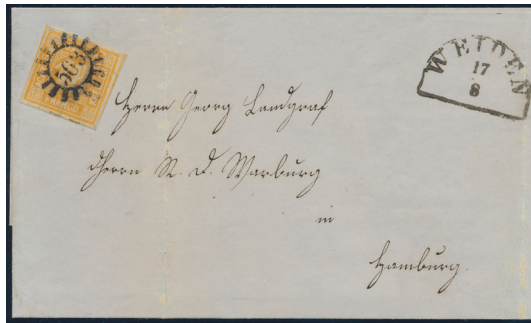 563
WEIDEN
17
8
Herrn Georg Landgraf
Herrn R. D. Warburg
in
Hamburg.